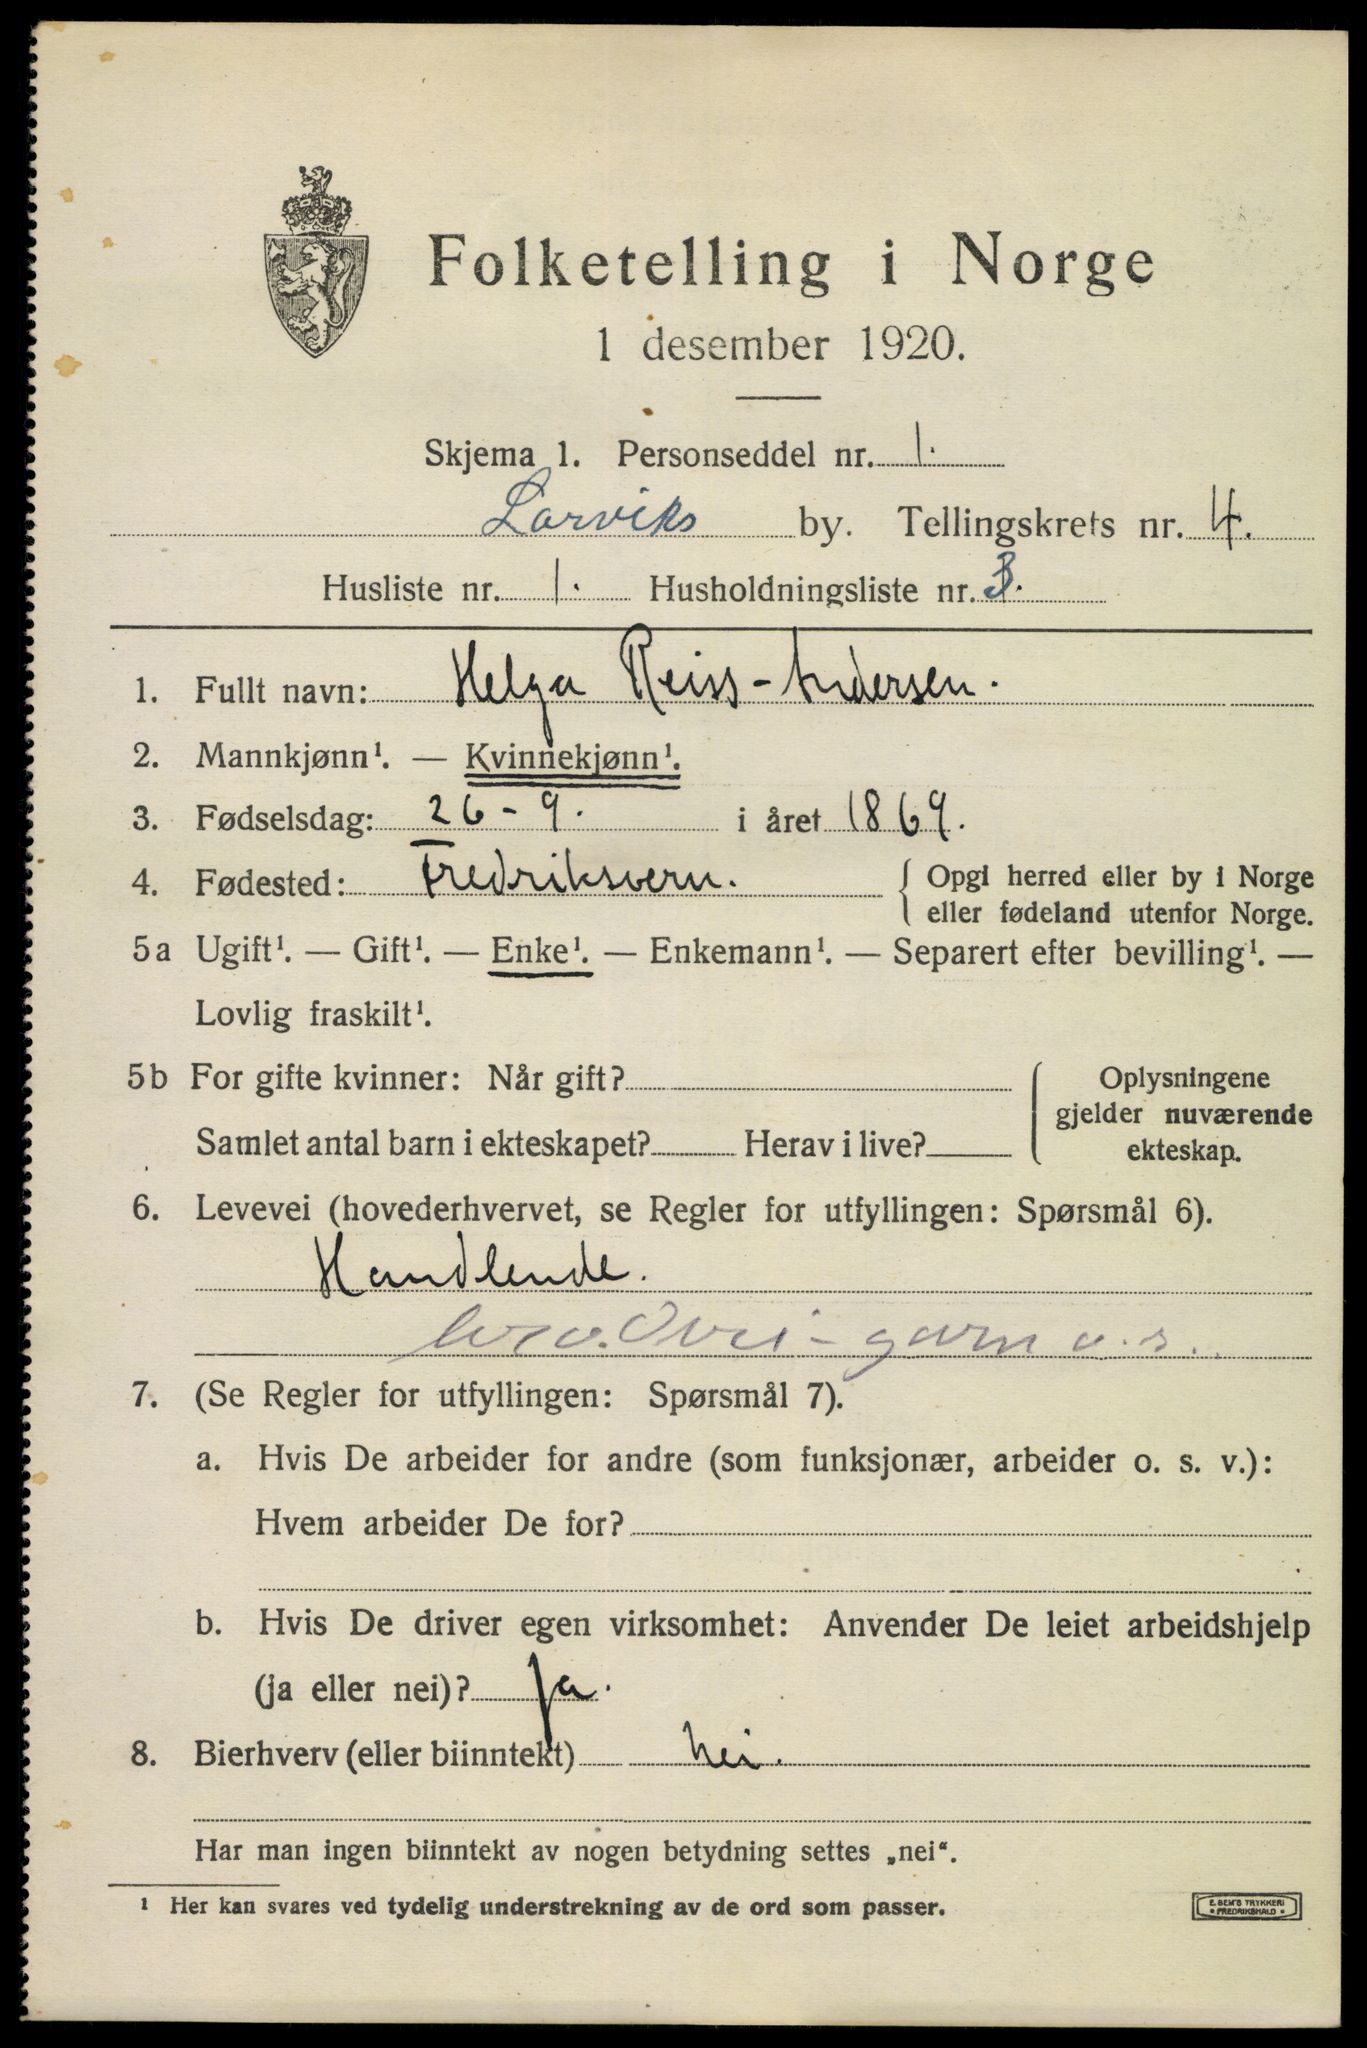 Folketelling i Norge
1 desember 1920.
Skjema 1. Personseddel nr. 1.
Larviks by. Tellingskrets nr. 4.
Husliste nr. 1. Husholdningsliste nr. 3.
1. Fullt navn: Helga Reiss-Andersen.
2. Mannkjønn¹. — Kvinnekjønn¹.
3. Fødselsdag: 26-9. i året 1869.
4. Fødested: Fredriksvern. { Opgi herred eller by i Norge
eller fødeland utenfor Norge.
5a Ugift¹. — Gift¹. — Enke¹. — Enkemann¹. — Separert efter bevilling¹. —
Lovlig fraskilt¹.
5b For gifte kvinner: Når gift?
Samlet antal barn i ekteskapet? Herav i live?
Oplysningene
gjelder nuværende
ekteskap.
6. Levevei (hovederhvervet, se Regler for utfyllingen: Spørsmål 6).
Handlende.
garn
7. (Se Regler for utfyllingen: Spørsmål 7).
a. Hvis De arbeider for andre (som funksjonær, arbeider o. s. v.):
Hvem arbeider De for?
b. Hvis De driver egen virksomhet: Anvender De leiet arbeidshjelp
(ja eller nei)? Ja.
8. Bierhverv (eller biinntekt) Nei.
Har man ingen biinntekt av nogen betydning settes „nei“.
¹ Her kan svares ved tydelig understrekning av de ord som passer.
E. SEM'S TRYKKERI
• FREDRIKSHALD •